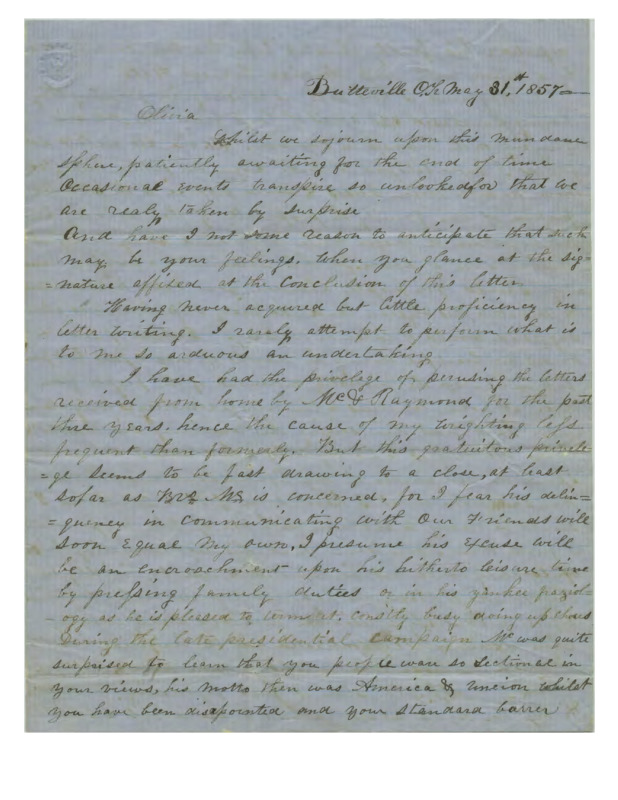 Butteville O.T. May 31,st 1857
Olivia
Whilst we sojourn upon this mundane
sphere, patiently awaiting for the end of time
Occasional events transpire so unlookedfor that we
are realy taken by surprise
And have I not some reason to anticipate that such
may be your feelings. When you glance at the sig=
=nature affised at the conclusion of this letter
Having never acquired but little proficiency in
letter writing. I rarely attempt to perform what is
to me so arduous an undertaking
I have had the privelege of perusing the letters
received from home by Mc & Raymond for the past
thre years. hence the cause of my wrighting less
frequent than formerly. But this gratuitous privele=
=ge seems to be fast drawing to a close, at least
sofar as is concerned, for I fear his delin=
=quency in communicating with our Friends will
soon equal my own, I presume his excuse will
be an encroachment upon his hitherto leisure time
by pressing family duties or in his yankee
=ogy as he is pleased to term it. busy doing up chors
During the late presidential campaign Mc was quite
surprised to learn that you people ware so sectional in
your views, his motto then was America & union whilst
you have been disapointed and your standard barrer